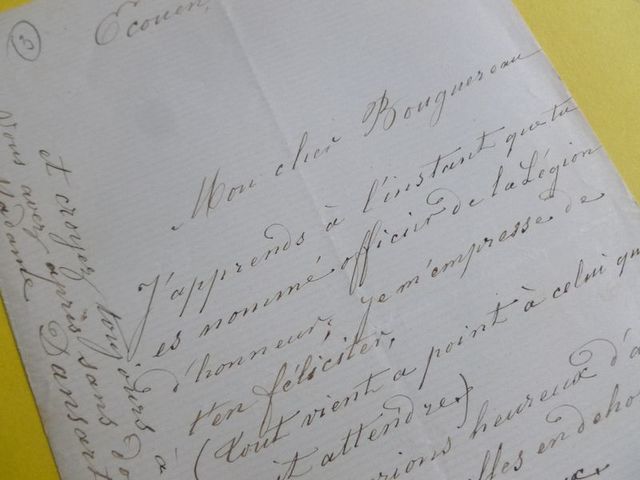 3
Ecouen,
Mon cher Bouguereau
J'apprends à l'instant que tu
es nommé officier de la Légion
d'honneur, je m'empresse de
t'en féliciter,
(tout vient a point à celui qui
attendre)
heureux d'a
en deho
Et croyez toujours à
vous avez après sans do
Madame Dansart